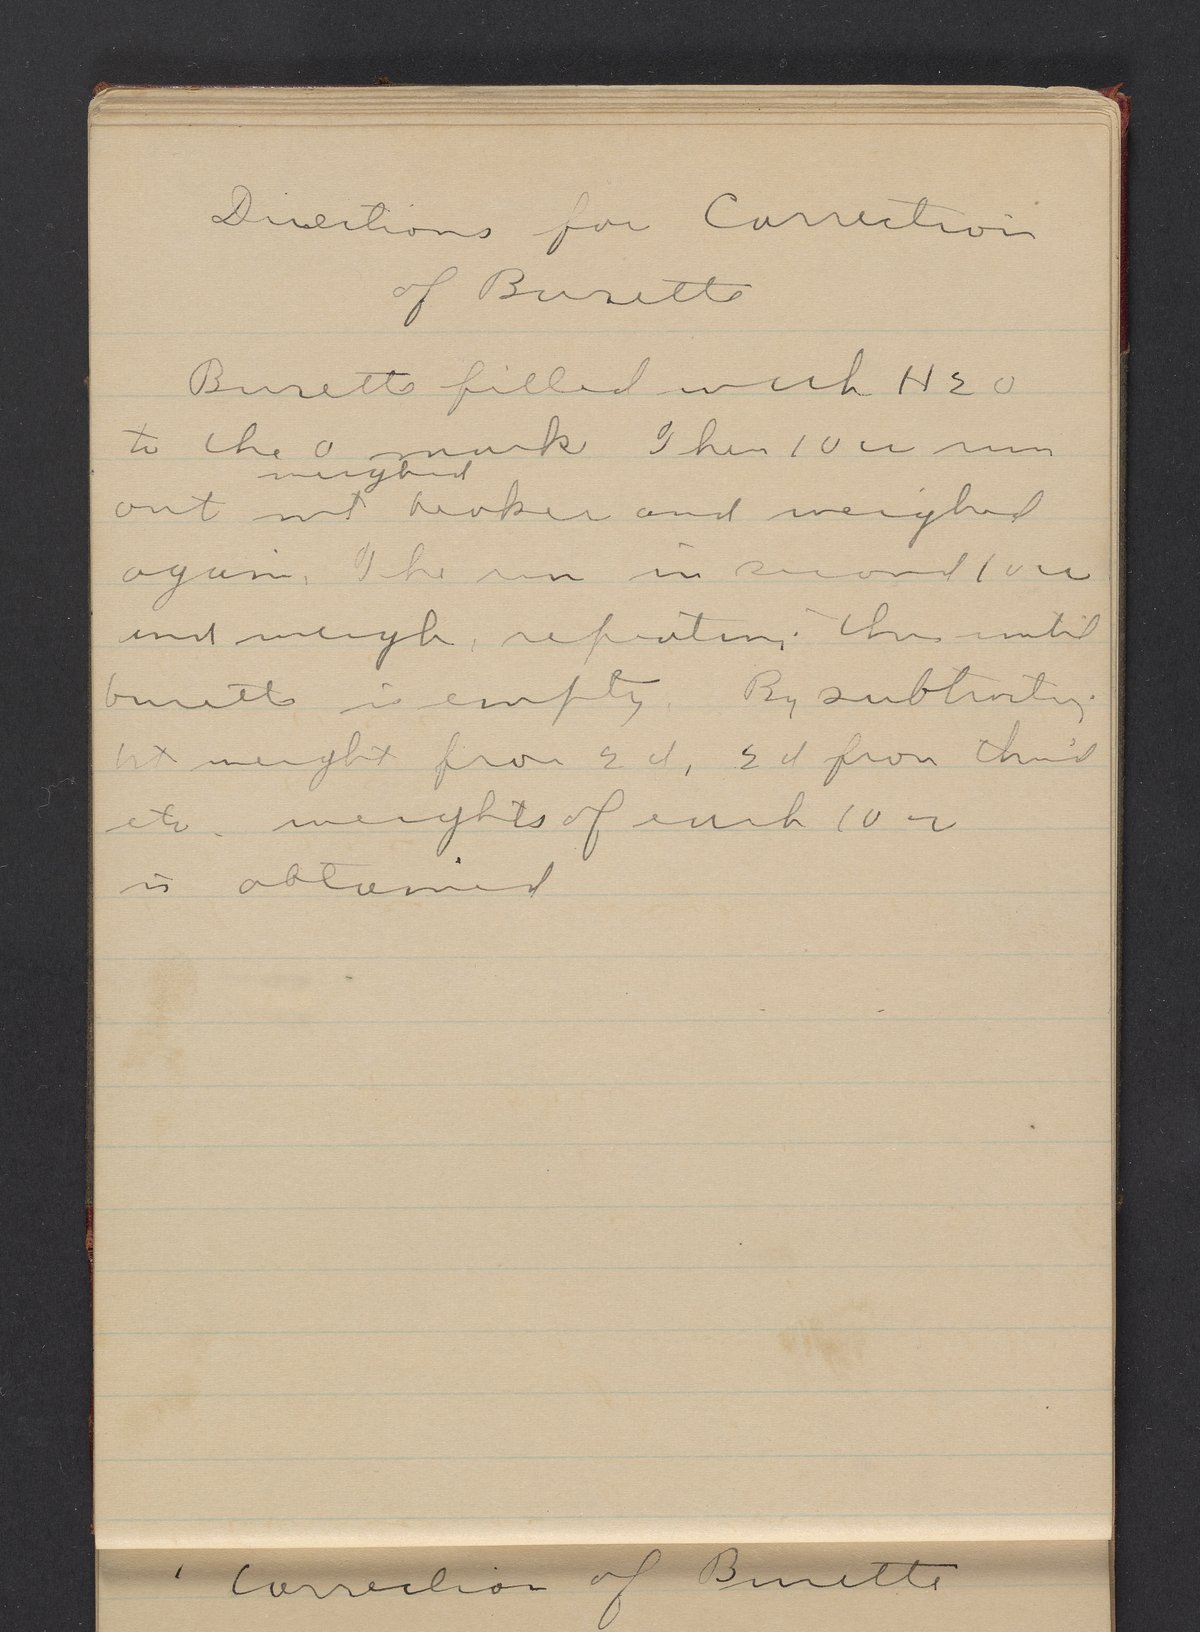 Directions for Correction
of Burette
Burette filled with H2O
to the 0 mark Then 10 cc run
weighed
out beaker and weighed
again. The run in second 10 cc
and weigh, repeating this until
burette is empty. By subtracting
1st weight from 2d, 2d from third
etc. weights of each 10 cc
is obtained
Correction of Burette